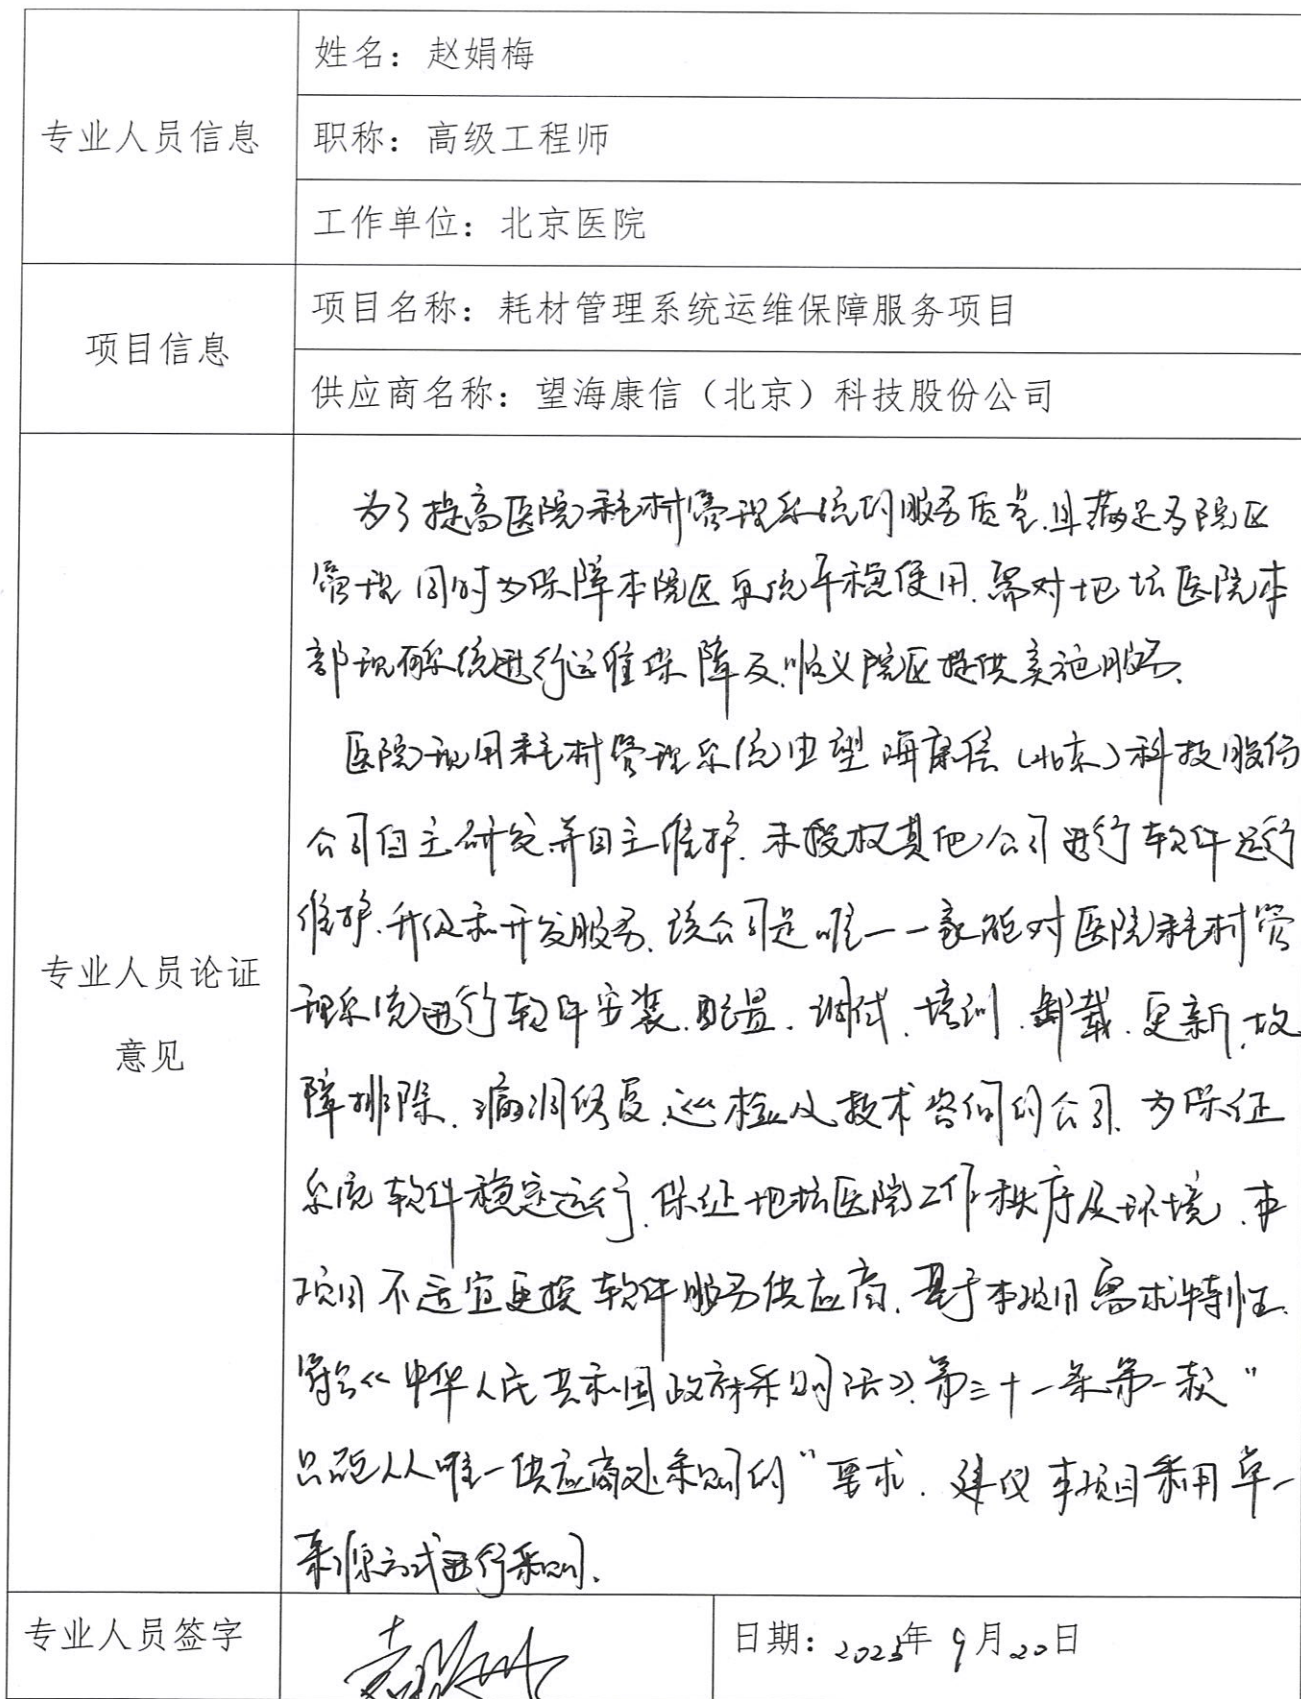 专业人员信息
姓名：赵娟梅
职称：高级工程师
工作单位：北京医院
项目信息
项目名称：耗材管理系统运维保障服务项目
供应商名称：望海康信（北京）科技股份公司
专业人员论证
意见
为了提高医院耗材管理系统的服务质量，且满足多院区
管理，同时为保障本院区系统平稳使用，需对地坛医院本
部现有系统进行运维保障及顺义院区提供实施服务。
医院现用耗材管理系统由望海康信（北京）科技股份
公司自主研发并自主维护，未授权其他公司进行软件运行
维护、升级和开发服务，该公司是唯一一家能对医院耗材管
理系统进行软件安装、配置、调试、培训、卸载、更新、故
障排除、漏洞修复、巡检及技术咨询的公司，为保证
系统软件稳定运行，保证地坛医院工作秩序及环境，本
项目不适宜更换软件服务供应商，基于本项目需求特性，
符合《中华人民共和国政府采购法》第三十一条第一款“
只能从唯一供应商处采购的”要求，建议本项目采用单一
来源方式进行采购。
专业人员签字
日期：2023年9月20日